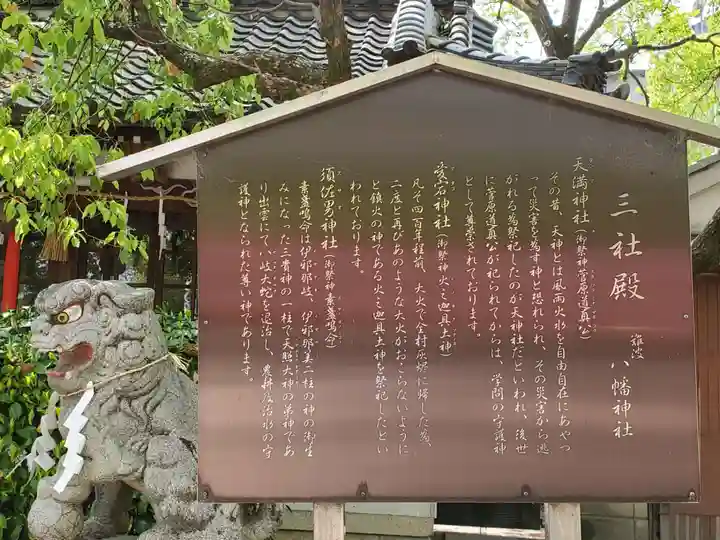 三社殿
難波
八幡神社
天満神社(御祭神菅原道真公)
その昔、天神とは風雨火水を自由自在にあやつ
って災害を為す神と恐れられ、その災害から逃
がれる為祭祀したのが天神社だといわれ、後世
に菅原道真公が祀られてからは、学問の守護神
として尊崇されております。
愛宕神社(御祭神火之迦具土神)
凡そ四百年程前、大火で全村灰燼に帰した為、
二度と再びあのような大火がおこらないように
と鎮火の神である火之迦具土神を祭祀したとい
われております。
須佐男神社(御祭神素盞鳴命)
素盞鳴命は伊邪那岐、伊邪那美二柱の神の御生
みになった三貴神の一柱で天照大神の弟神であ
り出雲にて八岐大蛇を退治し、農耕及治水の守
護神となられた尊い神であります。